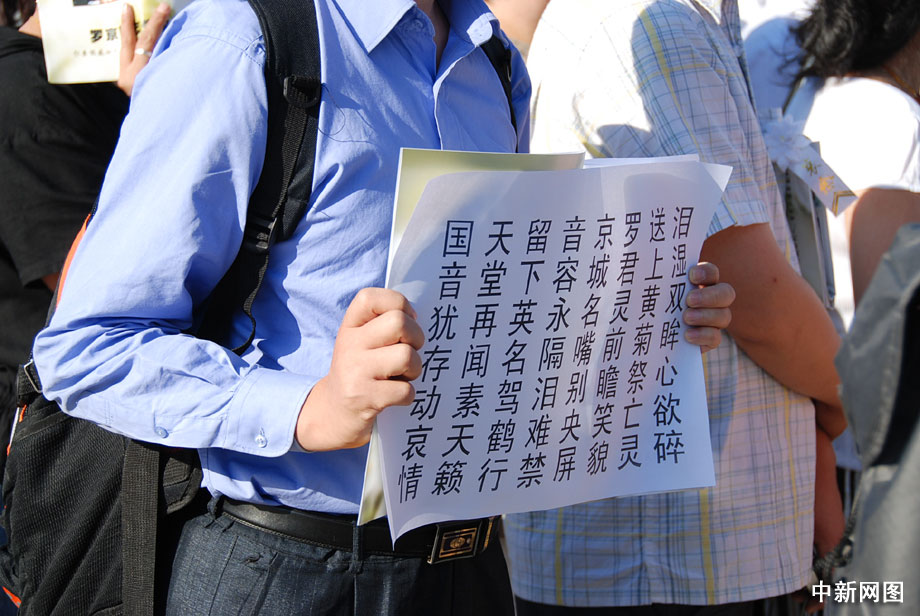 罗
泪湿双眸心欲碎
送上黄菊祭亡灵
罗君灵前瞻笑貌
京城名嘴别央屏
音容永隔泪难禁
留下英名驾鹤行
天堂再闻素天籁
国音犹存动哀情
中新网图